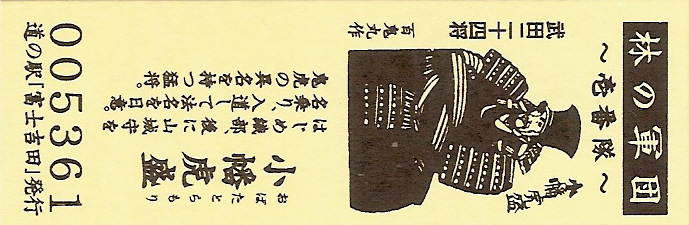 林の軍団
～壱番隊～
武田二十四将
百鬼丸作
小幡虎盛
おばたとらもり
小幡虎盛
はじめ織部、後に山城守を
名乗り、入道して法名を日意。
鬼虎の異名を持つ猛将。
005361
道の駅「富士吉田」発行